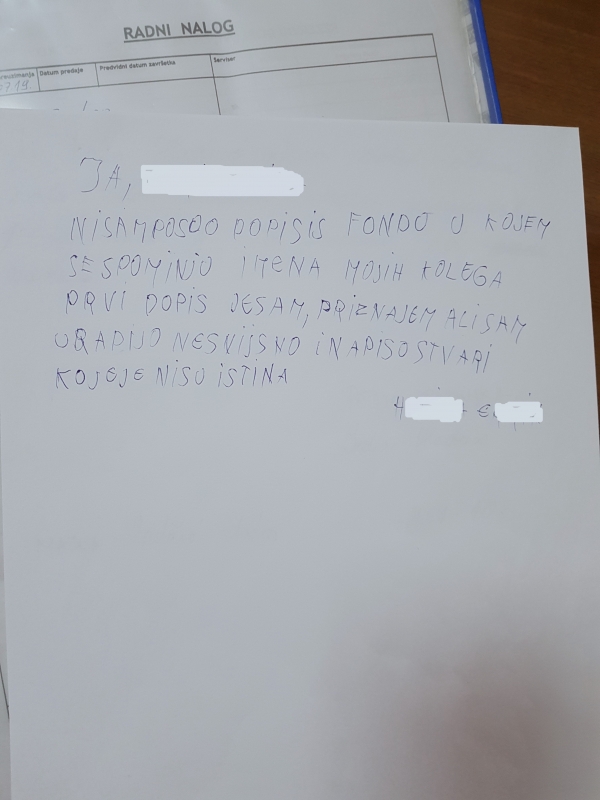 RADNI NALOG
Datum predaje
Predvidni datum završetka
Serviser
JA,
NISAM POSOO DOPISIS FONDU U KOJEM
SE SPOMINJO IMENA MOJIH KOLEGA
PRVI DOPIS JESAM, PRIZNAJEM ALI SAM
URADIJO NESVIJSNO I NAPISO STVARI
KOJEJE NISU ISTINA